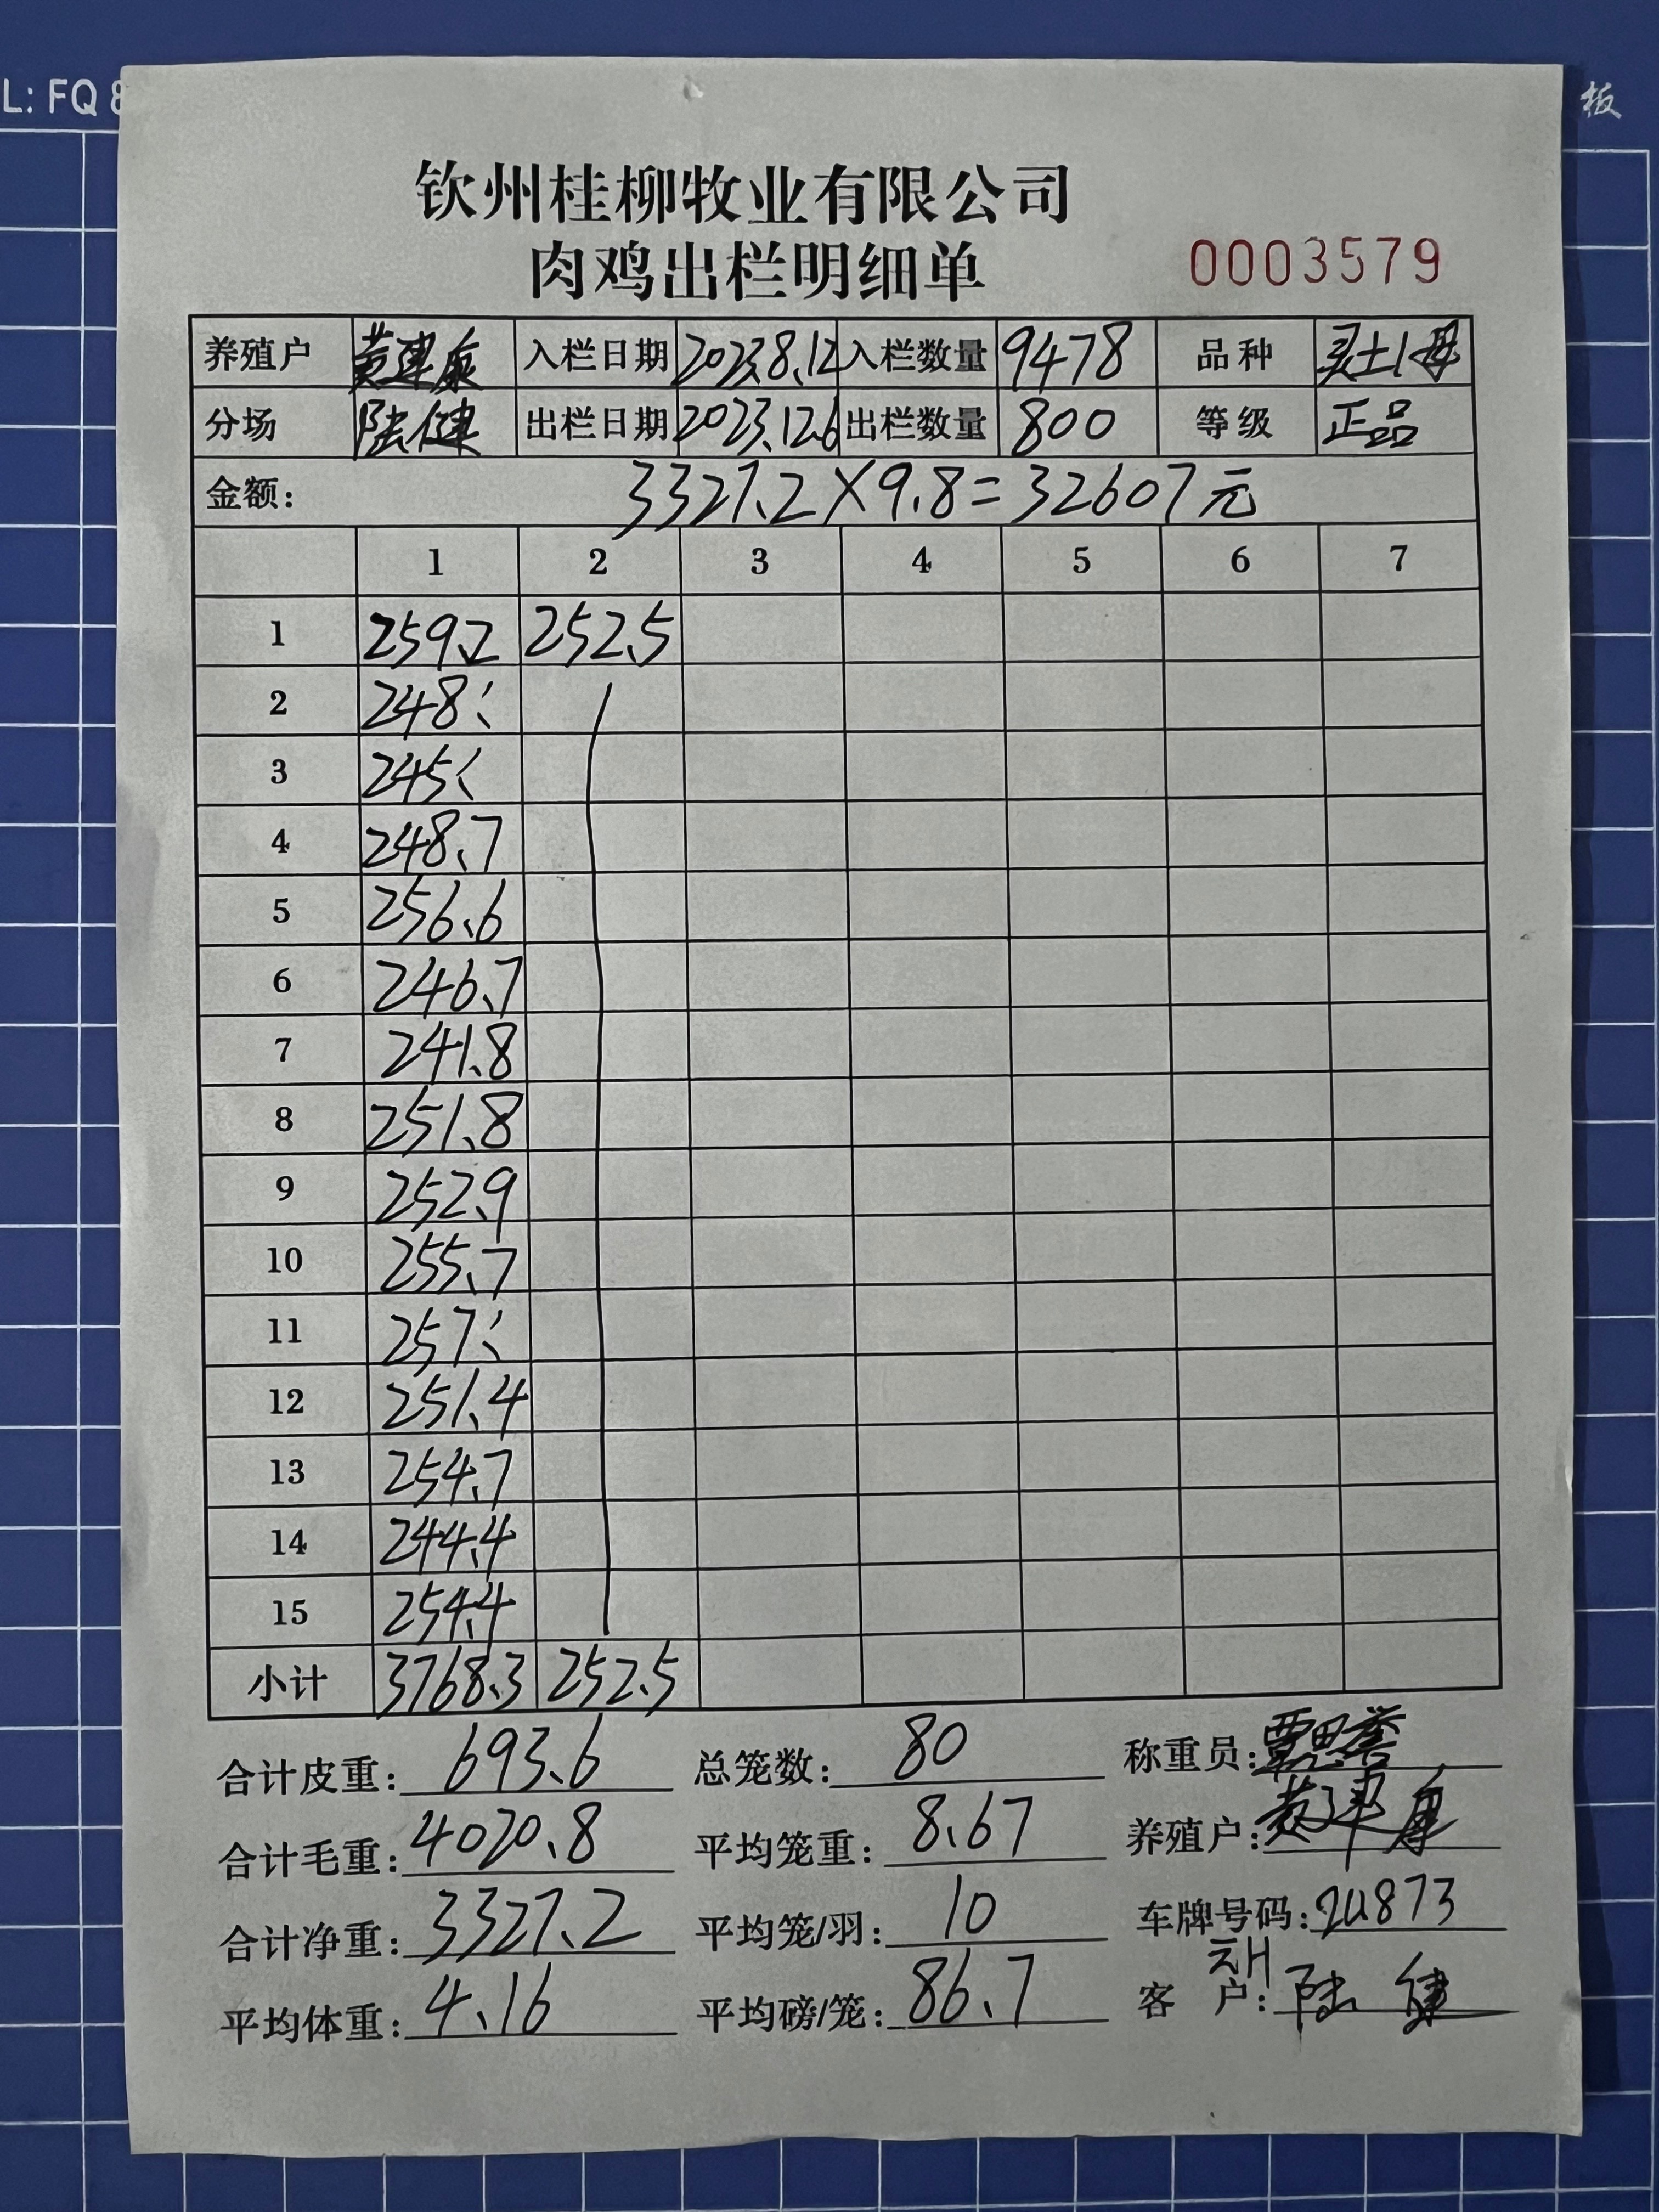 L: FQ 8
板
钦州桂柳牧业有限公司
肉鸡出栏明细单 0003579
养殖户 黄建康 入栏日期 2023.8.12 入栏数量 9478 品种 土1母
分场 陆健 出栏日期 2023.12.6 出栏数量 800 等级 正品
金额: 3327.2×9.8=32607元
1 2 3 4 5 6 7
1 259.2 252.5
2 248.
3 245
4 248.7
5 256.6
6 246.7
7 241.8
8 251.8
9 252.9
10 255.7
11 257.
12 251.4
13 254.7
14 244.4
15 254.4
小计 3768.3 252.5
合计皮重: 693.6 总笼数: 80 称重员: 覃思誉
合计毛重: 4020.8 平均笼重: 8.67 养殖户: 黄建康
合计净重: 3327.2 平均笼/羽: 10 车牌号码: 2U873
平均体重: 4.16 平均磅/笼: 86.7 客 户: 陆健